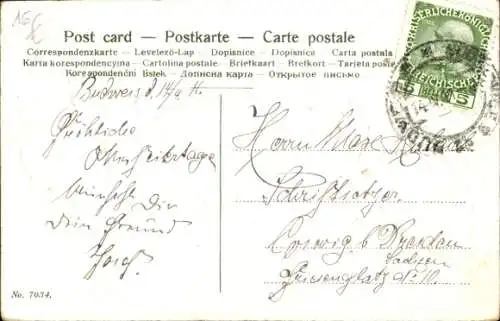 15 €
Post card — Postkarte — Carte postale
Correspondenzkarte — Levelező-Lap — Dopisnice — Dopisnica — Carta postala
Karta korespondencyjna — Cartolina postale — Briefkaart — Brefkort — Tarjeta posta
Korespondenční lístek — Дописна карта — Открытое письмо
KAISERLICHEKÖNIGLICHE
5 5
Budweis d.
Fröhliche
Osterfeiertage
wünscht Dir
Dein Freund
Josef.
Herrn Max
Schriftsetzer
Coswig b Dresden
Sachsen
No 10.
No. 7034.